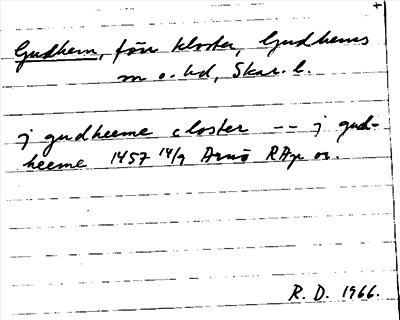 Gudhem, förr kloster, Gudhems
sn o. hd, Skar. l.
j gudheeme closter -- j gud-
heeme 1457 14/9 Arnö RAp or.
R. D. 1966.